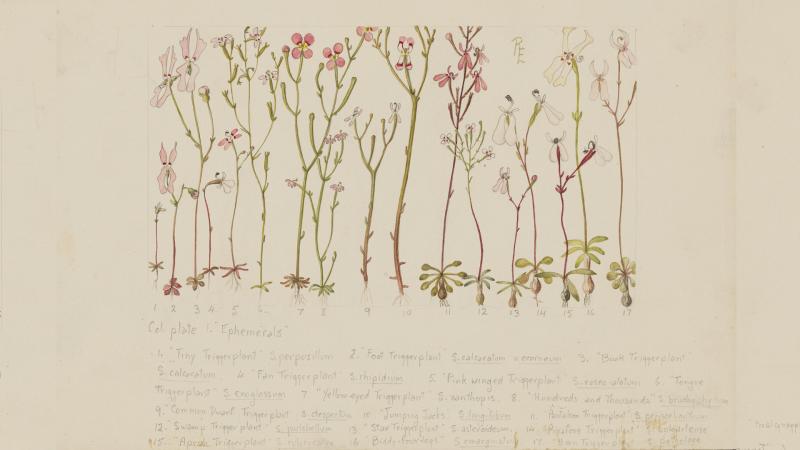 RE
1 2 3 4 5 6 7 8 9 10 11 12 13 14 15 16 17
Col. plate 1. "Ephemerals"
1. "Tiny Triggerplant" S. perpusillum 2. "Foot Triggerplant" S. calcaratum v ecorneum 3. "Book Triggerplant"
S. calcaratum 4. "Fan Triggerplant" S. rhipidium 5. "Pink winged Triggerplant" S. roseo-alatum 6. "Tongue
Triggerplant" S. exoglossum 7. "Yellow eyed Triggerplant" S. xanthopis. 8. "Hundreds and Thousands" S. brachyphyllum
9. "Common Dwarf Triggerplant S. despectum 10. "Jumping Jacks" S. longitubum 11. Triggerplant"
12. "Swamp Triggerplant" S. pulchellum 13 "Star Triggerplant" S. asteroideum 14. Triggerplant
15. Triggerplant" 16. S. emarginatum 17. Triggerplant S.